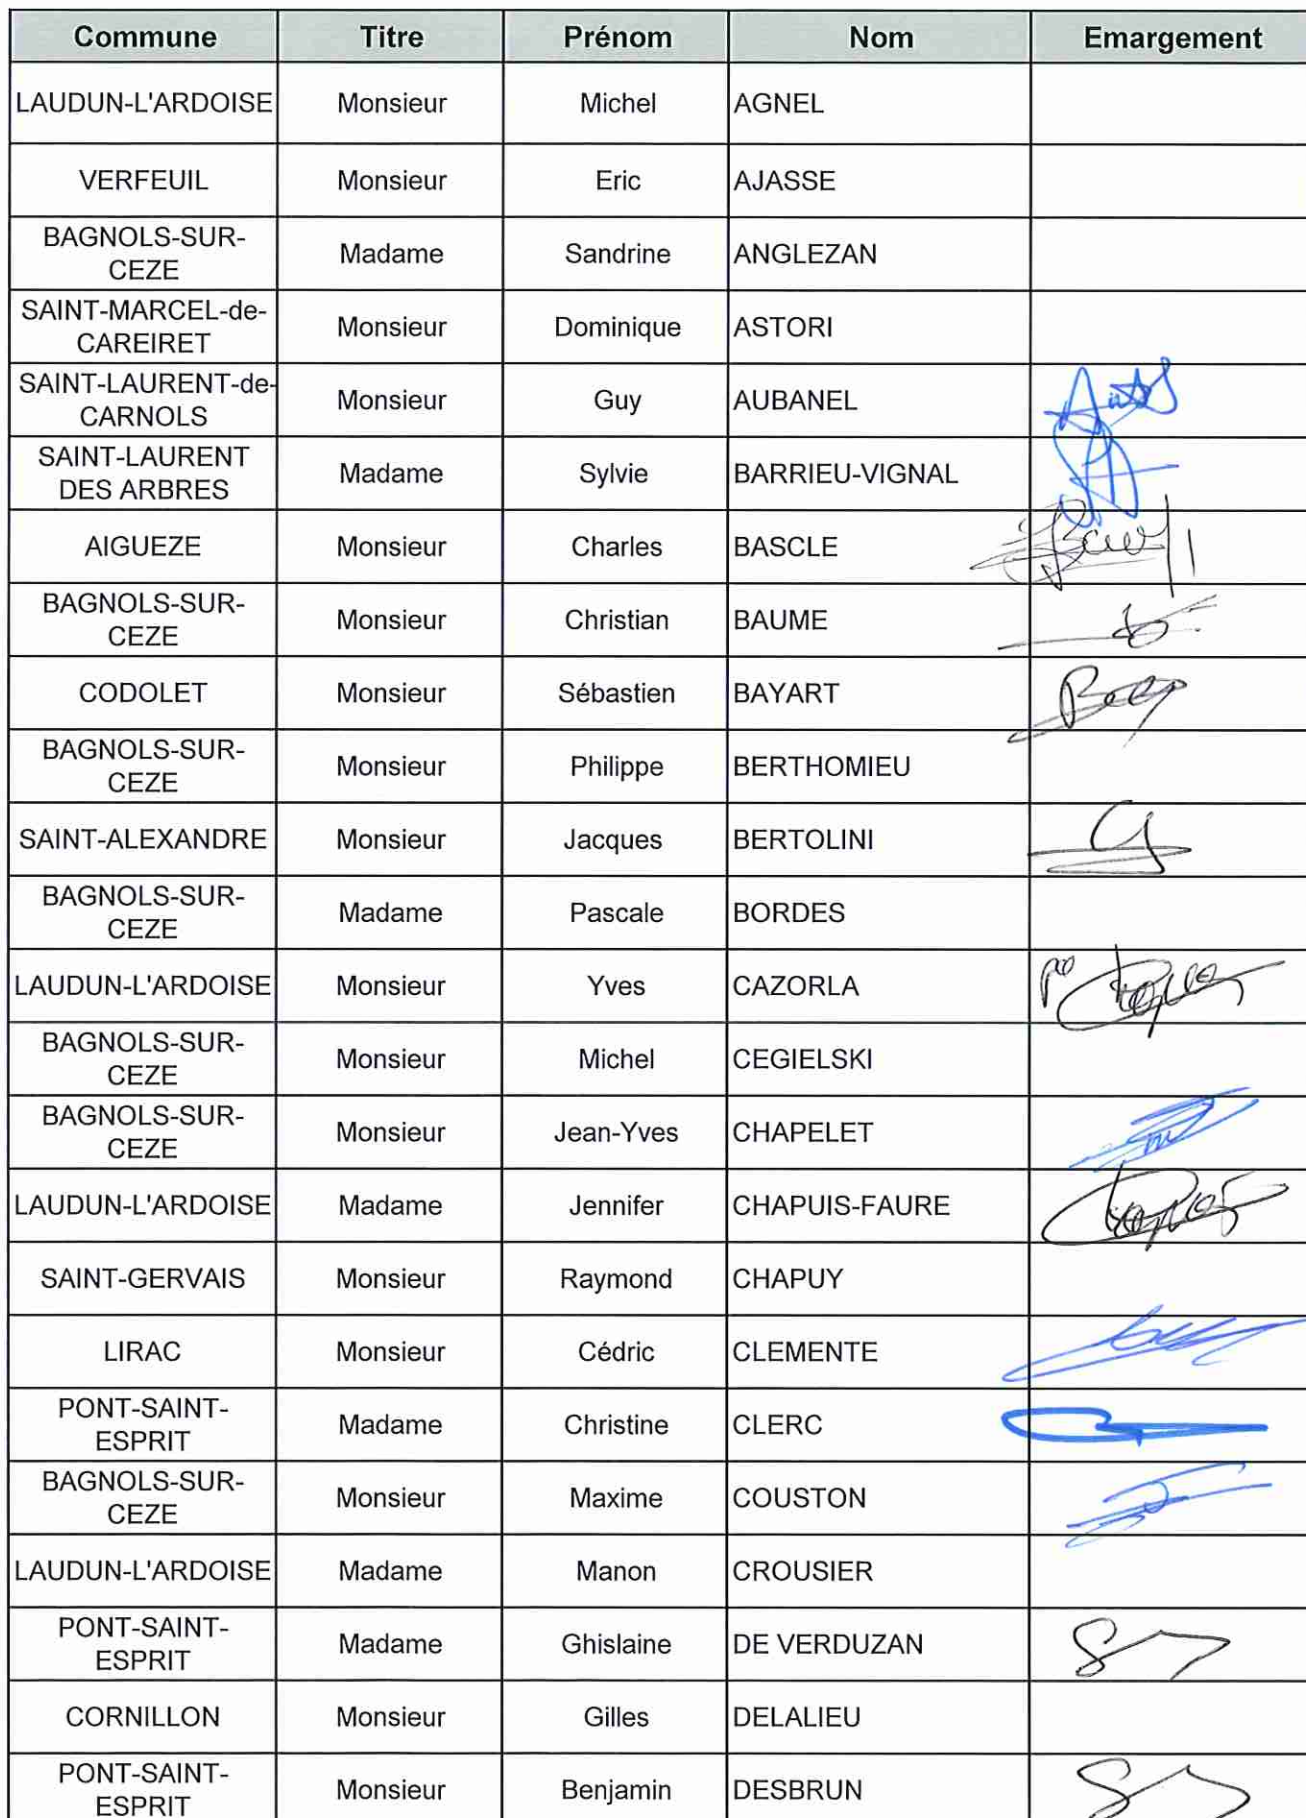 Commune Titre Prénom Nom Emargement
LAUDUN-L'ARDOISE Monsieur Michel AGNEL
VERFEUIL Monsieur Eric AJASSE
BAGNOLS-SUR-
CEZE Madame Sandrine ANGLEZAN
SAINT-MARCEL-de-
CAREIRET Monsieur Dominique ASTORI
SAINT-LAURENT-de-
CARNOLS Monsieur Guy AUBANEL
SAINT-LAURENT
DES ARBRES Madame Sylvie BARRIEU-VIGNAL
AIGUEZE Monsieur Charles BASCLE
BAGNOLS-SUR-
CEZE Monsieur Christian BAUME
CODOLET Monsieur Sébastien BAYART
BAGNOLS-SUR-
CEZE Monsieur Philippe BERTHOMIEU
SAINT-ALEXANDRE Monsieur Jacques BERTOLINI
BAGNOLS-SUR-
CEZE Madame Pascale BORDES
LAUDUN-L'ARDOISE Monsieur Yves CAZORLA
BAGNOLS-SUR-
CEZE Monsieur Michel CEGIELSKI
BAGNOLS-SUR-
CEZE Monsieur Jean-Yves CHAPELET
LAUDUN-L'ARDOISE Madame Jennifer CHAPUIS-FAURE
SAINT-GERVAIS Monsieur Raymond CHAPUY
LIRAC Monsieur Cédric CLEMENTE
PONT-SAINT-
ESPRIT Madame Christine CLERC
BAGNOLS-SUR-
CEZE Monsieur Maxime COUSTON
LAUDUN-L'ARDOISE Madame Manon CROUSIER
PONT-SAINT-
ESPRIT Madame Ghislaine DE VERDUZAN
CORNILLON Monsieur Gilles DELALIEU
PONT-SAINT-
ESPRIT Monsieur Benjamin DESBRUN